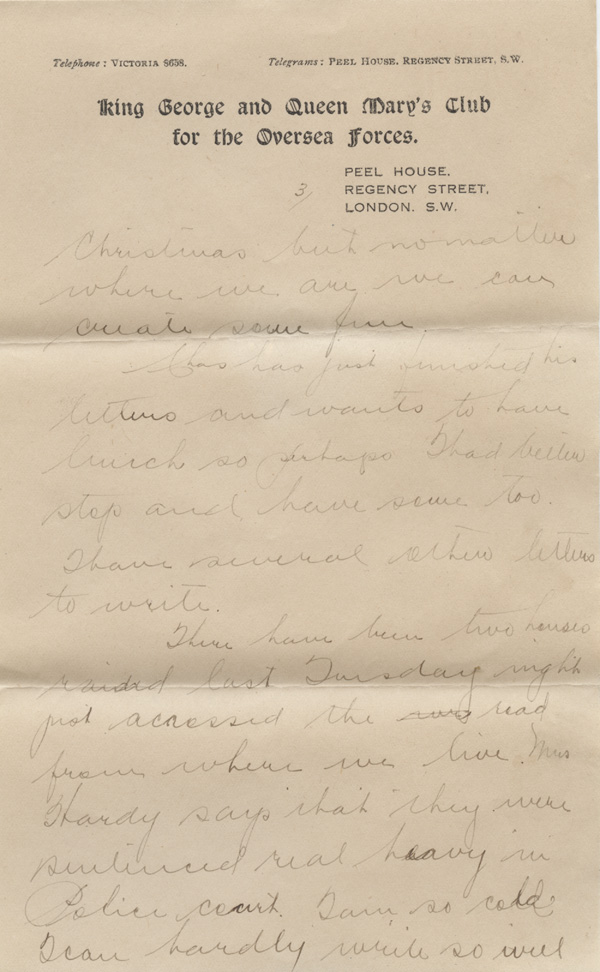 Telephone: VICTORIA 8658. Telegrams: PEEL HOUSE, REGENCY STREET, S.W.
King George and Queen Mary's Club
for the Oversea Forces.
PEEL HOUSE.
3/ REGENCY STREET,
LONDON. S.W.
Christmas but no matter
where we are we can
create some fun.
Chas has just finished his
letters and wants to have
lunch so perhaps I had better
stop and have some too.
I have several other letters
to write.
There have been two houses
raided last Tuesday night
just acrossed the road
from where we live. Mrs
Hardy says that they were
sentenced real heavy in
Police court. I am so cold
I can hardly write so will